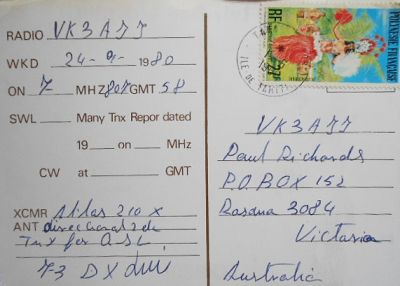 RADIO VK3AJJ
WKD 24-9-1980
ON 7 MHZ 807 GMT 58
SWL Many Tnx Repor dated
19 on MHz
CW at GMT
XCMR Atlas 210 X
ANT directional 2el
Tnx for QSL
73 DX
POLYNESIE FRANCAISE
RF
ILE DE TAHITI
VK3AJJ
Paul Richards
P.O. BOX 152
Rosanna 3084
Victoria
Australia